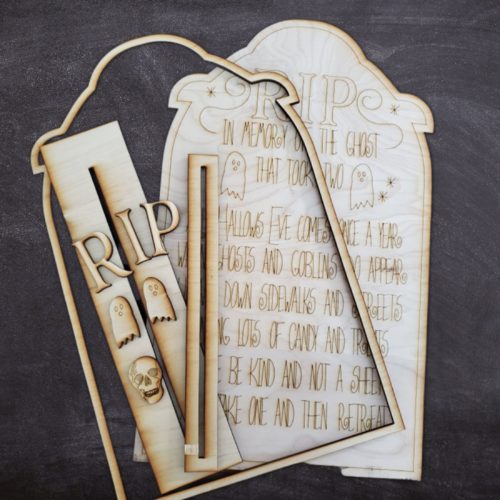 RIP
IN MEMORY OF THE GHOST
THAT TOOK TWO
HALLOWS EVE COMES ONCE A YEAR
GHOSTS AND GOBLINS APPEAR
DOWN SIDEWALKS AND STREETS
LOTS OF CANDY AND TREATS
BE KIND AND NOT A
ONE AND THEN RETREAT
RIP